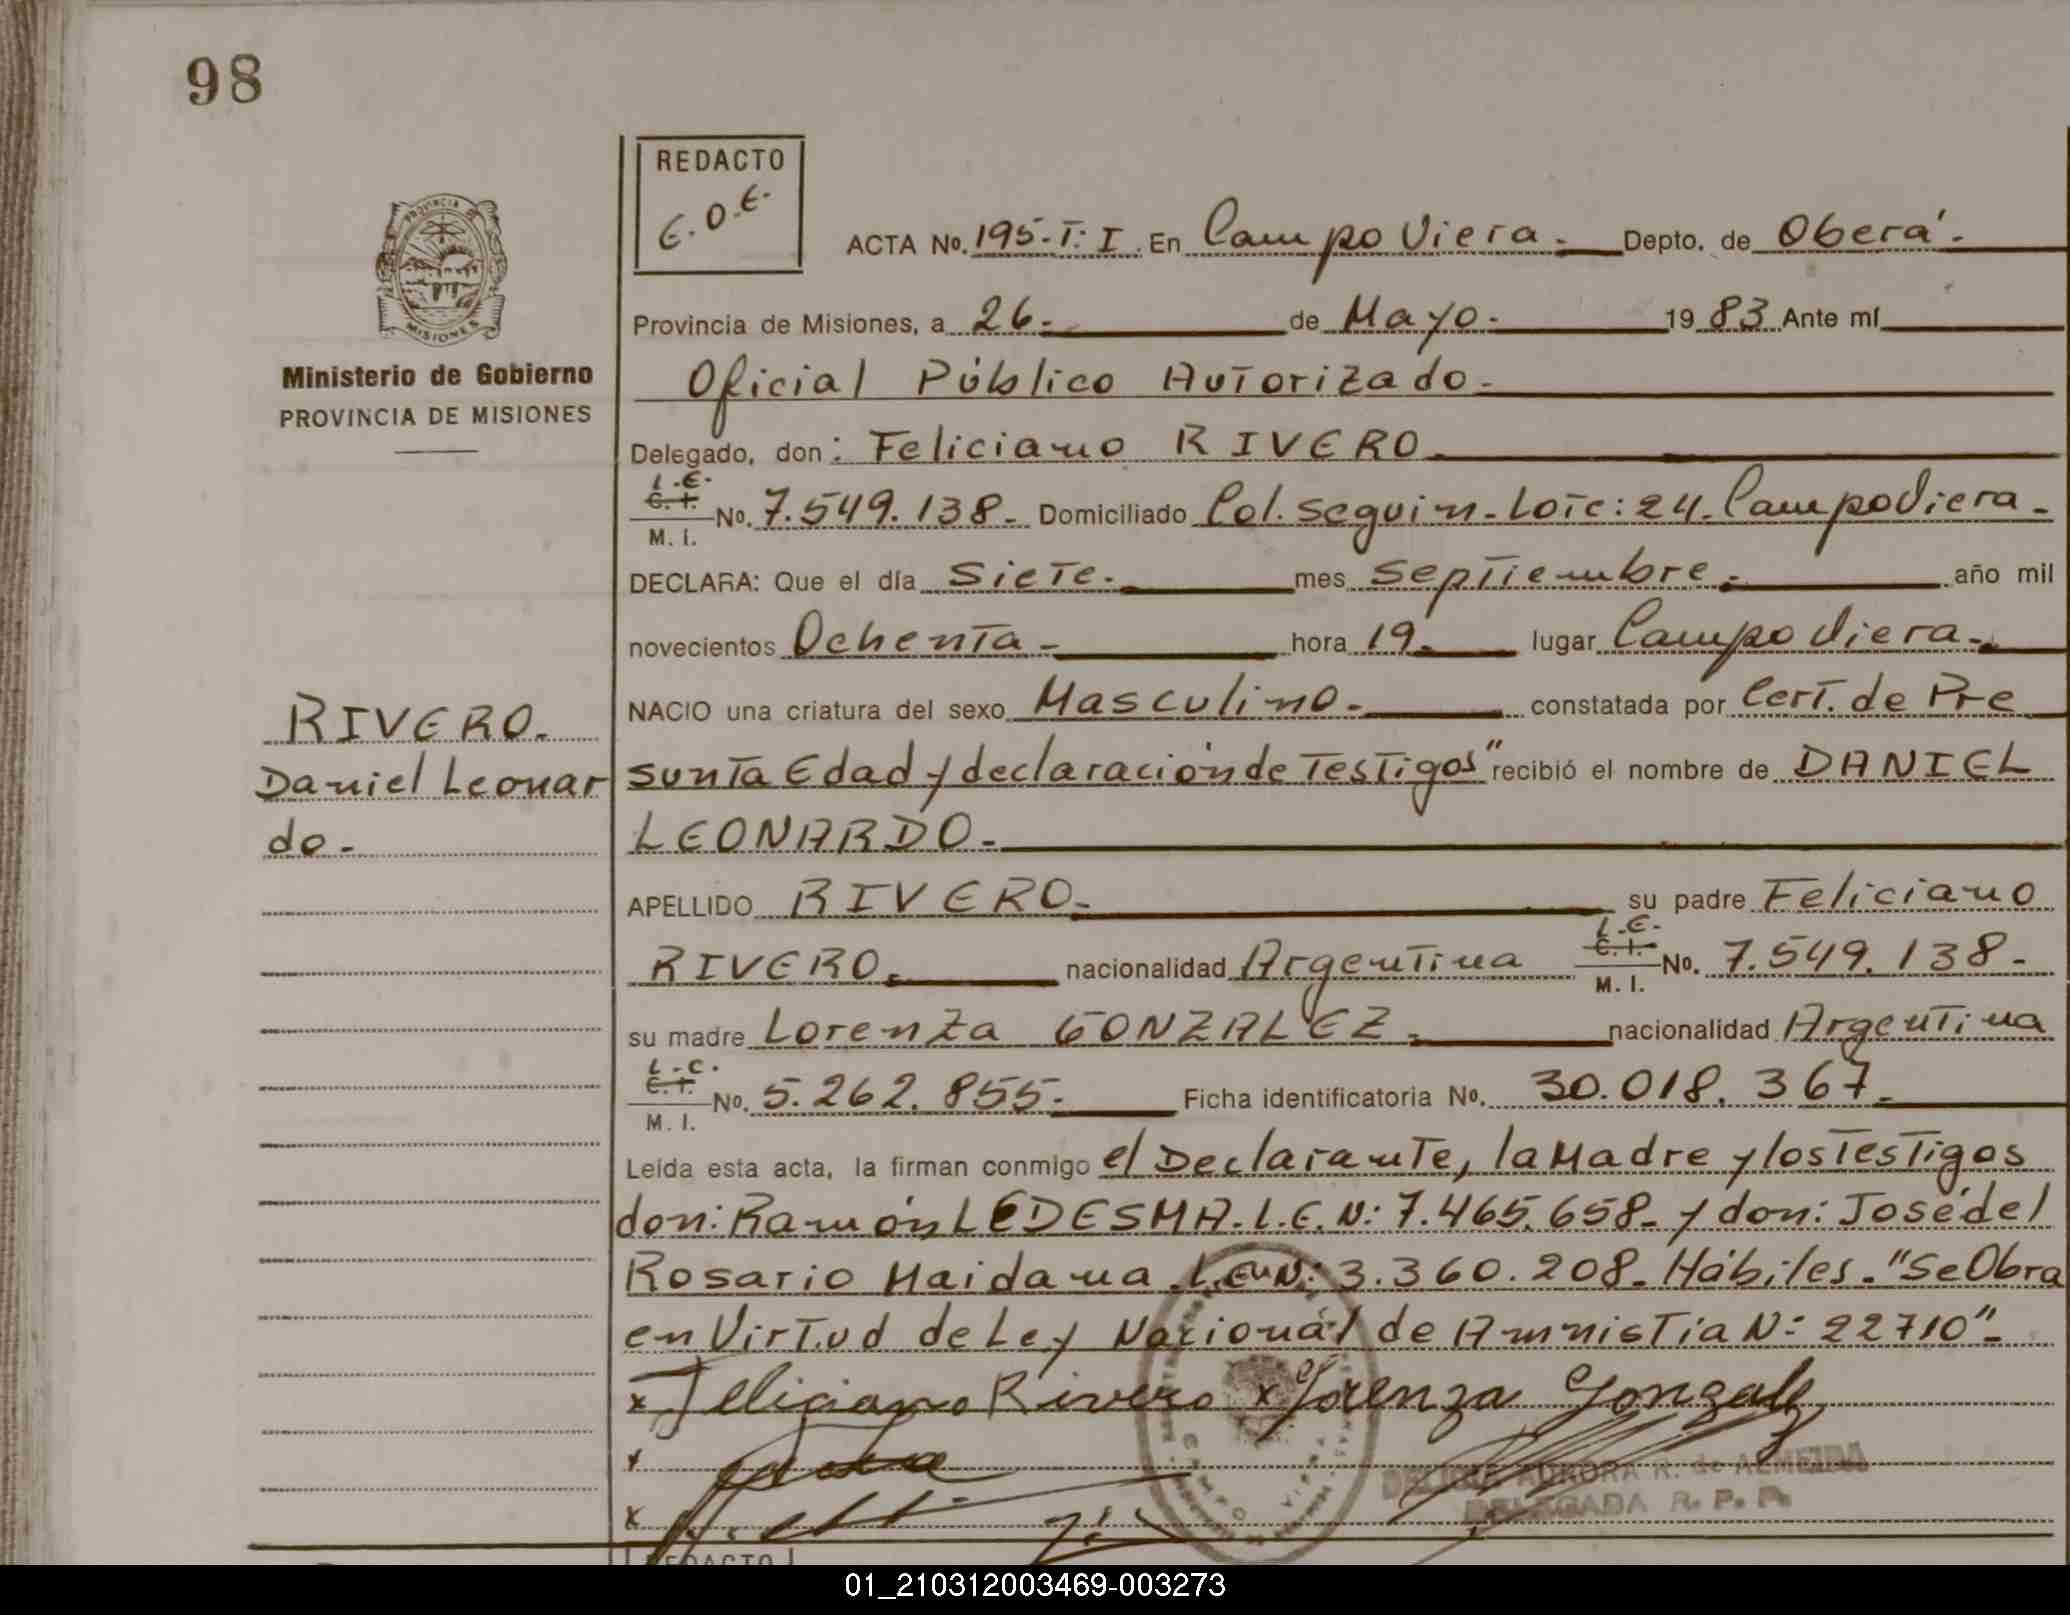 98
REDACTO
E.O.E.
ACTA No. 195-T: I. En Campo Viera.- Depto. de Oberá.-
PROVINCIA DE
MISIONES
Provincia de Misiones, a 26.- de Mayo.- 1983 Ante mí
Ministerio de Gobierno
PROVINCIA DE MISIONES
Oficial Público Autorizado.-
Delegado, don: Feliciano RIVERO.-
L.E.
C.I.
M. I. No. 7.549.138.- Domiciliado Col. Seguin.- Lote: 24. Campo Viera.-
DECLARA: Que el día Siete.- mes Septiembre.- año mil
novecientos Ochenta.- hora 19.- lugar Campo Viera.-
NACIO una criatura del sexo Masculino.- constatada por Cert. de Pre
RIVERO.-
Daniel Leonar
do.-
sunta Edad y declaración de Testigos" recibió el nombre de DANIEL
LEONARDO.-
APELLIDO RIVERO.- su padre Feliciano
RIVERO.- nacionalidad Argentina L.E. C.I. M. I. No. 7.549.138.-
su madre Lorenza GONZALEZ.- nacionalidad Argentina
L.C.
C.I.
M. I. No. 5.262.855.- Ficha identificatoria No. 30.018.367.-
Leida esta acta, la firman conmigo el Declarante, la Madre y los Testigos
don: Ramón LEDESMA. L.E. N: 7.465.658.- y don: José del
Rosario Maidana L.E. N: 3.360.208.- Hábiles.- "Se Obra
en Virtud de Ley Nacional de Amnistía N: 22710".-
x Feliciano Rivero x Lorenza Gonzalez
x
x
AURORA R. de ALMEIDA
DELEGADA R. P. P.
CAMPO VIERA
REDACTO
01_210312003469-003273